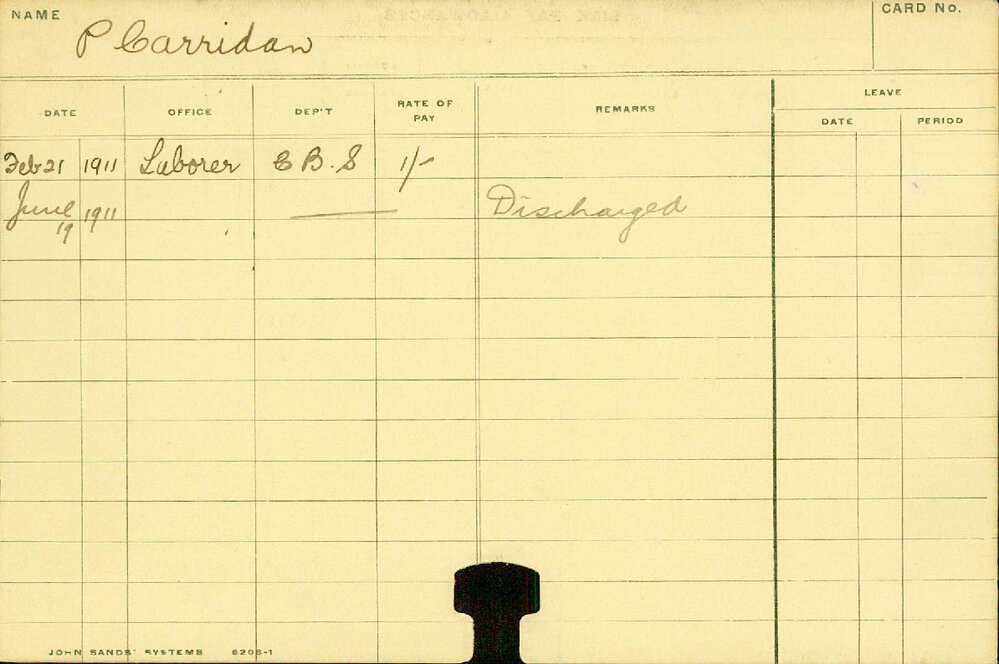 NAME
CARD No.
P Carridan
LEAVE
DATE OFFICE DEP'T RATE OF PAY REMARKS DATE PERIOD
Feb 21 1911 Laborer E B. S 1/-
June 19 1911 Discharged
JOHN SANDS' SYSTEMS 6206-1